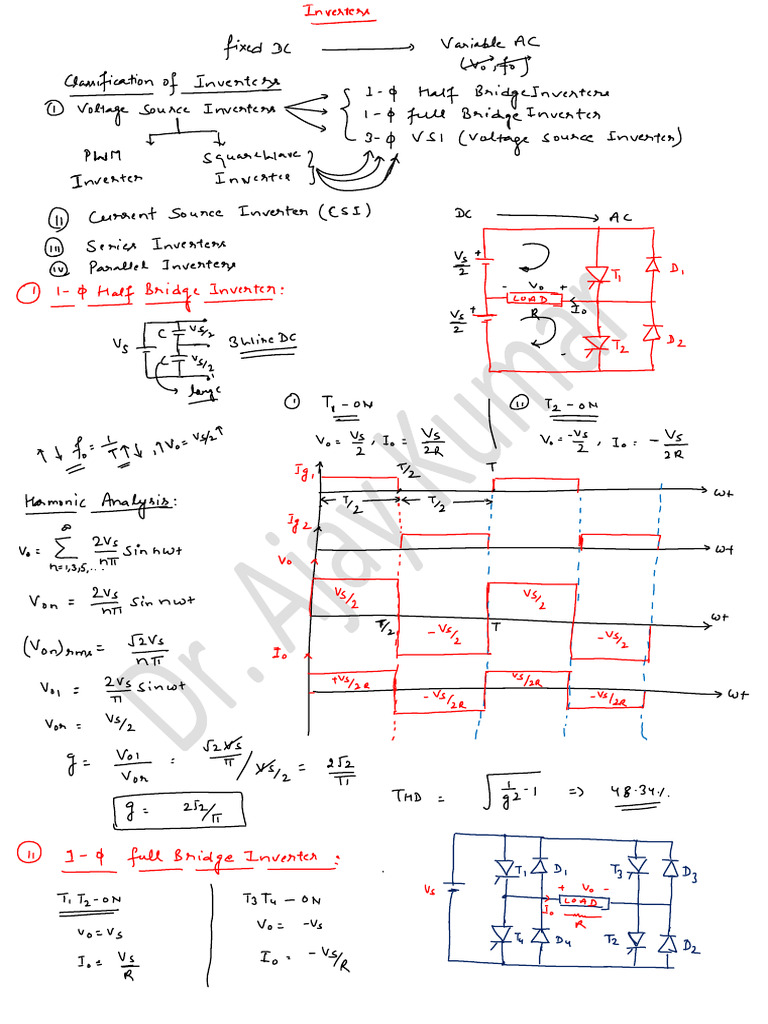 Inverters
fixed DC → Variable AC
(V₀, f₀)
Classification of Inverters
① Voltage Source Inverters
1-ϕ Half Bridge Inverters
1-ϕ full Bridge Inverter
3-ϕ VSI (Voltage Source Inverter)
PWM Inverter
Square Wave Inverter
ⓘⓘ Current Source Inverter (CSI)
ⓘⓘⓘ Series Inverters
ⓘⓥ Parallel Inverters
DC → AC
Vs/2
+
- V₀ +
LOAD
R
I₀
T₁
D₁
Vs/2
+
-
T₂
D₂
① 1-ϕ Half Bridge Inverter:
Vs
C
Vs/2
C
Vs/2
3 Wire DC
large C
↑↓ f₀ = 1/T ↑↓, ↑V₀ = Vs/2 ↑
ⓘ T₁-ON
V₀ = Vs/2, I₀ = Vs/2R
ⓘⓘ T₂-ON
V₀ = -Vs/2, I₀ = -Vs/2R
Ig₁
T/2
T
ωt
T/2
T/2
Ig2
ωt
V₀
Vs/2
Vs/2
ωt
T/2
-Vs/2
T
-Vs/2
I₀
+Vs/2R
-Vs/2R
Vs/2R
-Vs/2R
ωt
Harmonic Analysis:
V₀ = ∞ Σ n=1,3,5,... 2Vs/nπ Sin nωt
V₀n = 2Vs/nπ Sin nωt
(V₀n)rms = √2Vs/nπ
V₀1 = 2Vs/π Sinωt
V₀r = Vs/2
g = V₀1/V₀r = √2Vs/π / Vs/2 = 2√2/π
g = 2√2/π
THD = √1/g2 -1 => 48.34%
ⓘⓘ 1-ϕ full Bridge Inverter:
T₁T₂-ON
V₀ = Vs
I₀ = Vs/R
T3T4 - ON
V₀ = -Vs
I₀ = -Vs/R
Vs
T₁
D₁
T3
D3
+ V₀ -
LOAD
I₀
R
T4
D4
T2
D2
Dr. Ajay Kumar